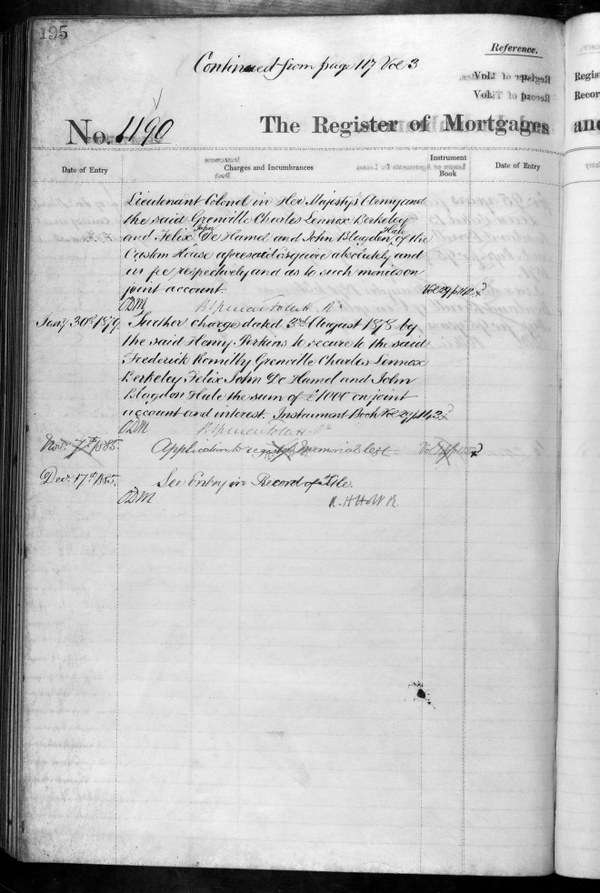 195
Continued from page 117 Vol 3
Reference.
No. 1190
The Register of Mortgages and
Date of Entry
Charges and Incumbrances
Instrument Book
Date of Entry
Lieutenant Colonel in Her Majesty's Army and
the said Grenville Charles Lennox Berkeley
and Felix John De Hamel and John Blagdon Hale of the
Custom House aforesaid Esquire absolutely and
in fee respectively and as to such monies on
joint account. Vol 29 p 142
ODM
Jany 30th 1879. Further charge dated 3rd August 1878 by
the said Henry Perkins to secure to the said
Frederick Romilly Grenville Charles Lennox
Berkeley Felix John De Hamel and John
Blagdon Hale the sum of £1000 on joint
account and interest. Instrument Book Vol 29 p 143
ODM
Nov. 7th 1885. Application to register Memorial left
Decr 17th 1885. See Entry in Record of Title.
ODM
R. H. H. W. R.